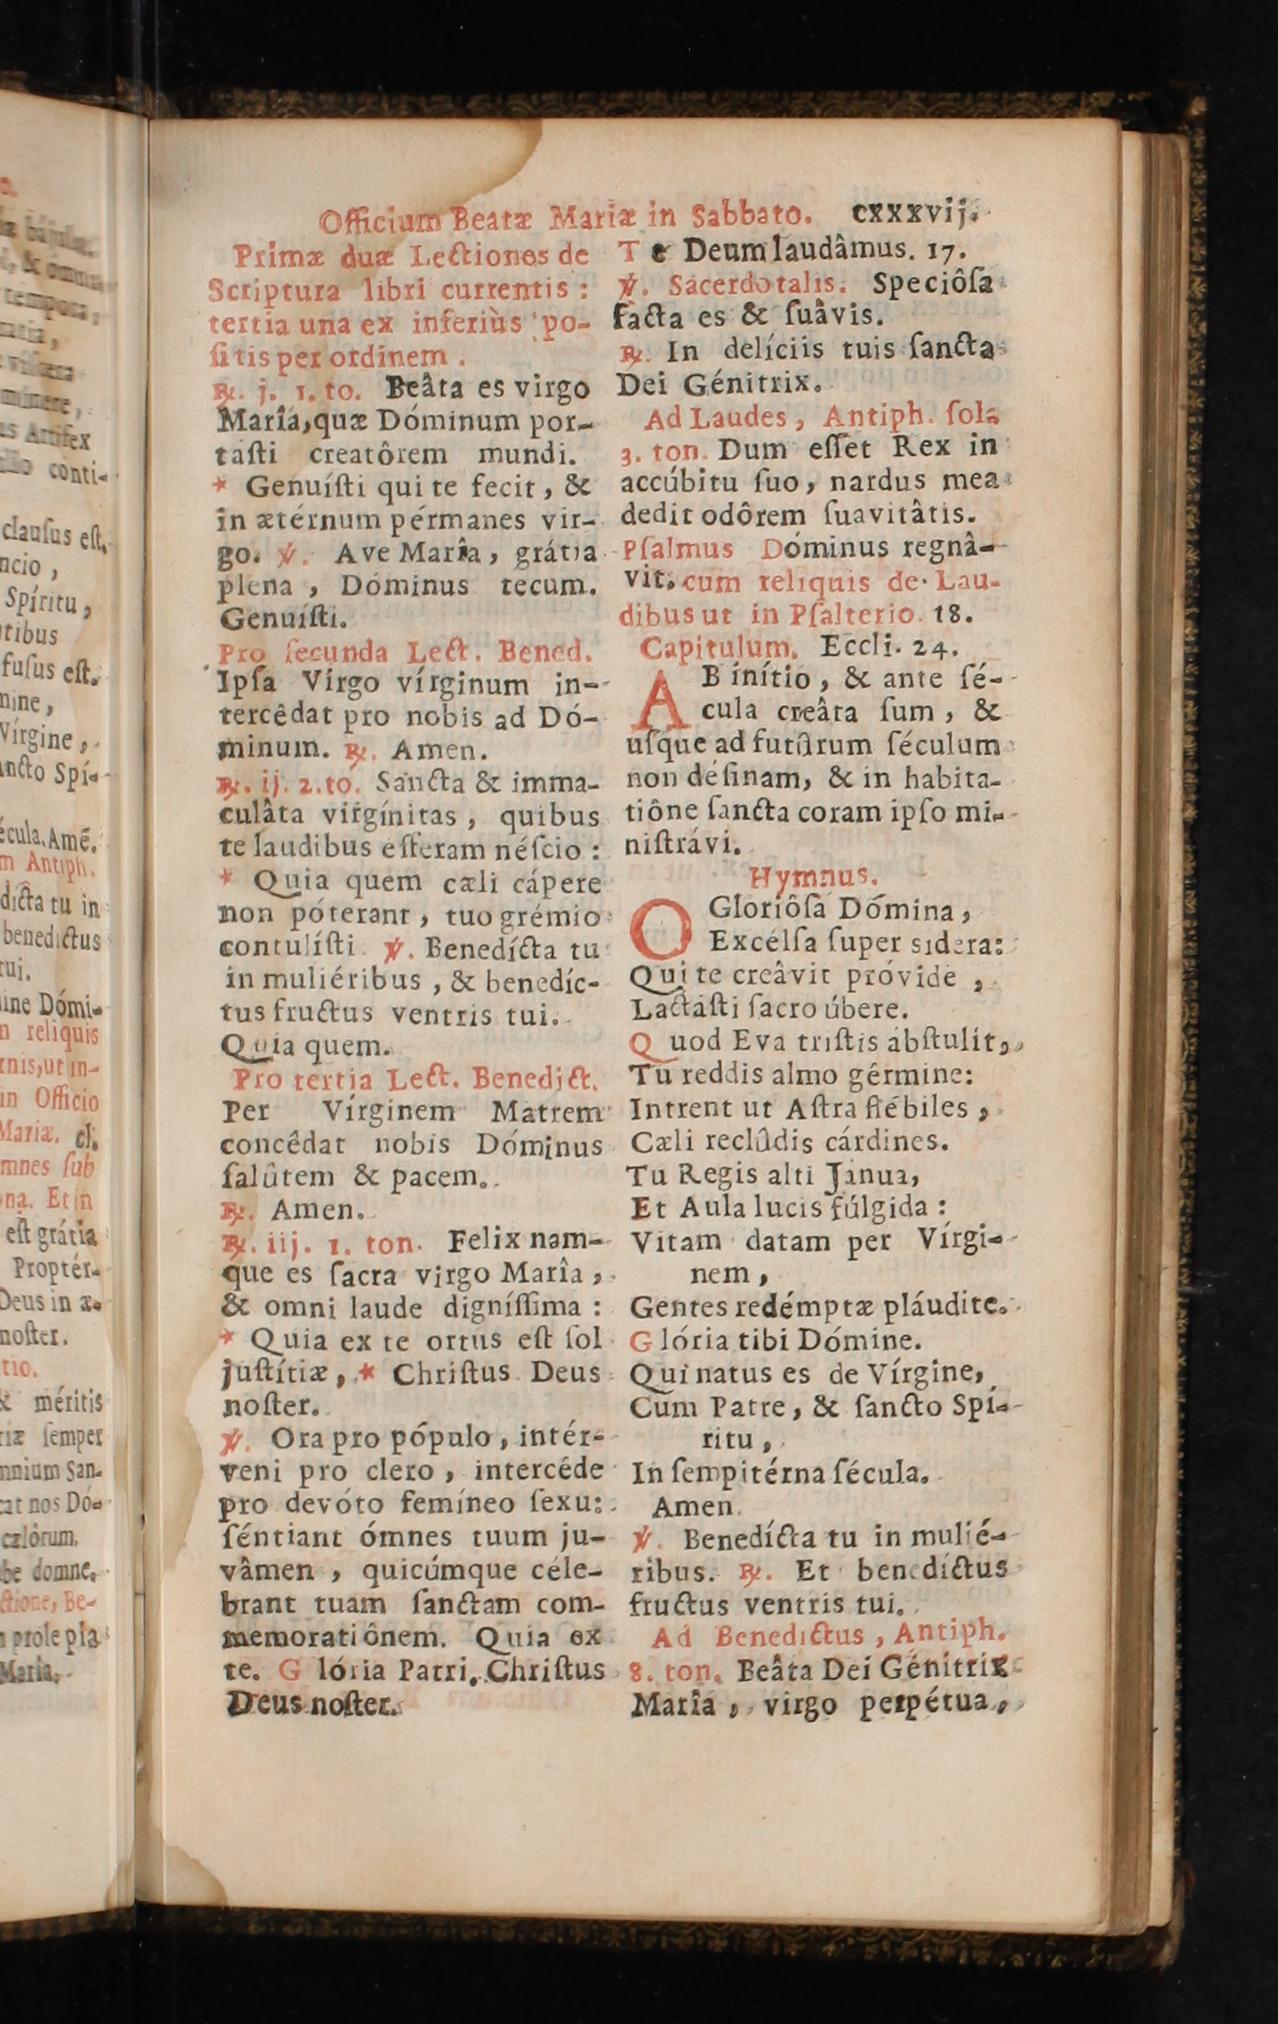 Officium Beatæ Mariæ in Sabbato. cxxxvij.
Primæ duæ Lectiones de
Scriptura libri currentis :
tertia una ex inferiùs po-
ſitis per ordinem .
℟. j. 1. to. Beâta es virgo
Marîa, quæ Dóminum por-
taſti creatôrem mundi.
* Genuíſti qui te fecit, &
in ætérnum pérmanes vir-
go. ℣. Ave Marîa, grátia
plena , Dóminus tecum.
Genuíſti.
Pro ſecunda Lect. Bened.
Ipſa Vírgo vírginum in-
tercêdat pro nobis ad Dó-
minum. ℟. Amen.
℟. ij. 2. to. Sancta & imma-
culâta virgínitas , quibus
te laudibus efferam néſcio :
* Quia quem cæli cápere
non póterant, tuo grémio
contulíſti. ℣. Benedícta tu
in muliéribus , & benedíc-
tus fructus ventris tui.
Quia quem.
Pro tertia Lect. Benedict.
Per Vírginem Matrem
concêdat nobis Dóminus
ſalûtem & pacem.
℟. Amen.
℟. iij. 1. ton. Felix nam-
que es ſacra virgo Marîa ,
& omni laude digníſſima :
* Quia ex te ortus eſt ſol
juſtítiæ, * Chriſtus Deus
noſter.
℣. Ora pro pópulo , intér-
veni pro clero , intercéde
pro devóto femíneo ſexu:
ſéntiant ómnes tuum ju-
vâmen , quicúmque céle-
brant tuam ſanctam com-
memoratiônem. Quia ex
te. G lória Patri. Chriſtus
Deus noſter.
T e Deum laudâmus. 17.
℣. Sacerdotalis. Speciôſa
facta es & ſuâvis.
℟. In delíciis tuis ſancta
Dei Génitrix.
Ad Laudes , Antiph. ſola
3. ton. Dum eſſet Rex in
accúbitu ſuo, nardus mea
dedit odôrem ſuavitâtis.
Pſalmus Dóminus regnâ-
vit, cum reliquis de Lau-
dibus ut in Pſalterio. 18.
Capitulum. Eccli. 24.
AB inítio , & ante ſé-
cula creâta ſum , &
uſque ad futûrum ſéculum
non déſinam, & in habita-
tiône ſancta coram ipſo mi-
niſtrávi.
Hymnus.
O Gloriôſa Dómina ,
Excélſa ſuper sidera:
Qui te creâvit próvide ,
Lactáſti ſacro úbere.
Q uod Eva triſtis ábſtulit,
Tu reddis almo gérmine:
Intrent ut Aſtra flébiles ,
Cæli reclûdis cárdines.
Tu Regis alti Janua,
Et Aula lucis fúlgida :
Vitam datam per Vírgi-
nem ,
Gentes redémptæ pláudite.
G lória tibi Dómine.
Qui natus es de Vírgine,
Cum Patre, & ſancto Spí-
ritu ,
In ſempitérna ſécula.
Amen.
℣. Benedícta tu in mulié-
ribus. ℟. Et benedíctus
fructus ventris tui.
Ad Benedictus , Antiph.
8. ton. Beâta Dei Génitrix
Marîa , virgo perpétua,